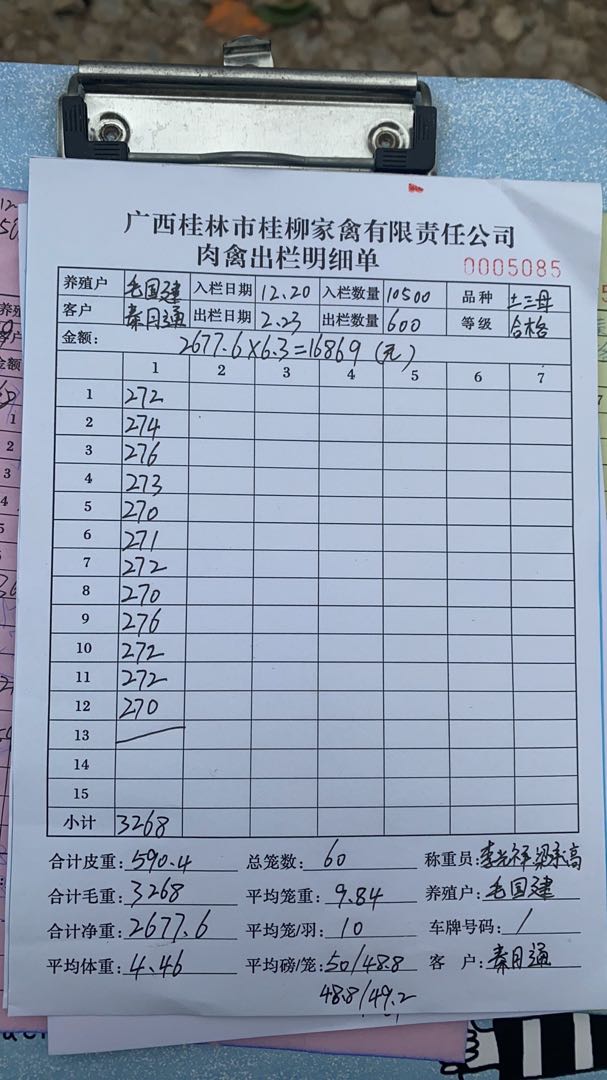 广西桂林市桂柳家禽有限责任公司
肉禽出栏明细单 0005085
养殖户 毛国建 入栏日期 12.20 入栏数量 10500 品种 土三母
客户 秦月通 出栏日期 2.23 出栏数量 600 等级 合格
金额: 2677.6×6.3=16869(元)
1 2 3 4 5 6 7
1 272
2 274
3 276
4 273
5 270
6 271
7 272
8 270
9 276
10 272
11 272
12 270
13
14
15
小计 3268
合计皮重: 590.4 总笼数: 60 称重员:
合计毛重: 3268 平均笼重: 9.84 养殖户: 毛国建
合计净重: 2677.6 平均笼/羽: 10 车牌号码: /
平均体重: 4.46 平均磅/笼: 50/48.8 客 户: 秦月通
48.8/49.2